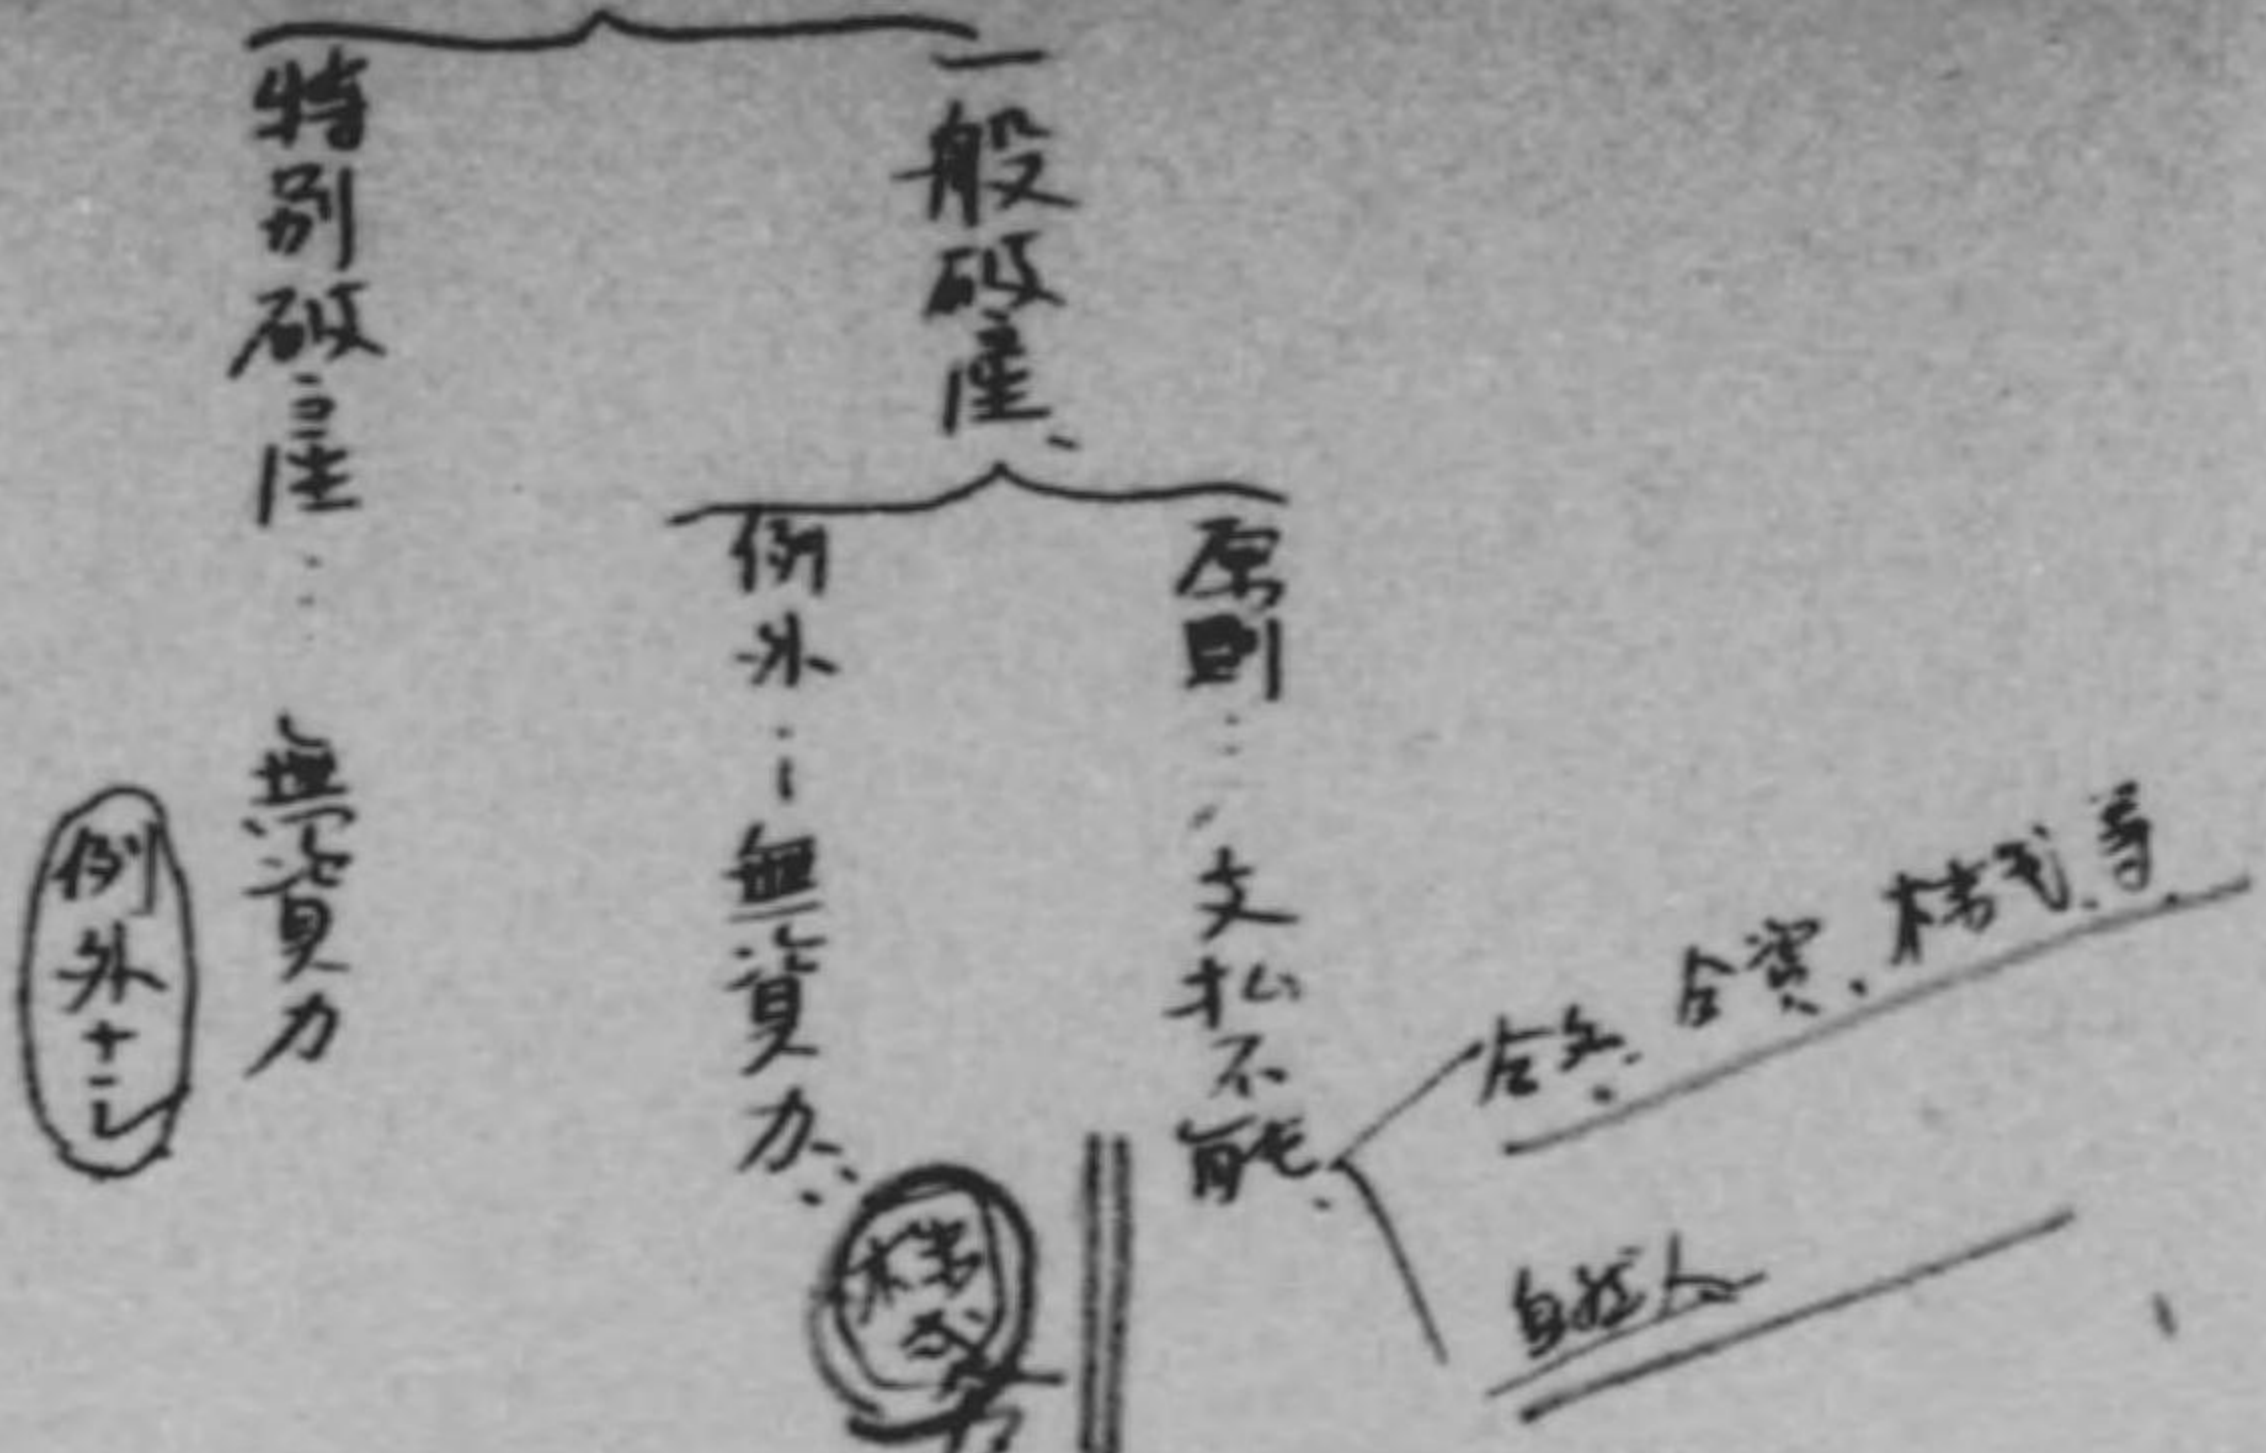 一般破産、
原則……支払不能、
合名、合資、株式、等
自然人
例外……無資力、
株式
等
特別破産……無資力
例外ナシ